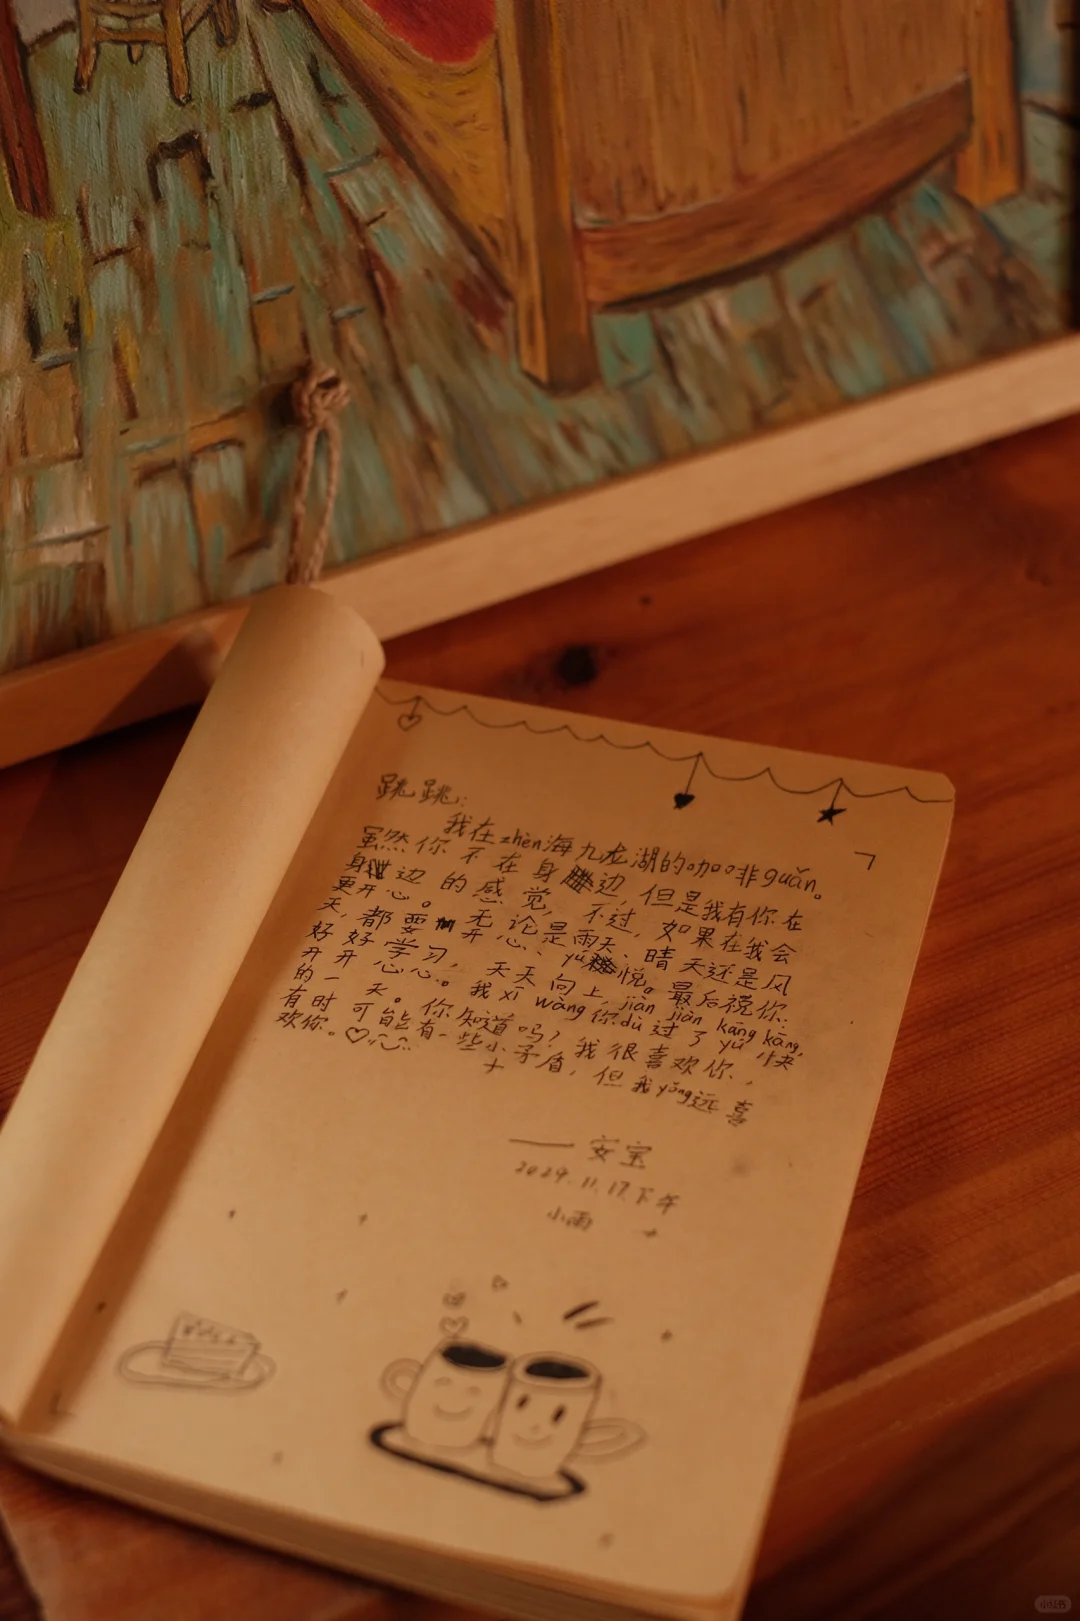 跳跳：
我在zhèn海九龙湖的咖啡guǎn。
虽然你不在身边，但是我有你在
身边的感觉，不过，如果在我会
更开心。无论是雨天、晴天还是风
天，都要开心、yú悦。最后祝你：
好好学习，天天向上，jiàn jiàn kāng kāng，
开开心心。我xī wàng你dù过了yú快
的一天。你知道吗？我很喜欢你，
有时可能有一些小矛盾，但我yǒng远喜
欢你。
——安宝
2024.11.17.下午
小雨
小红书